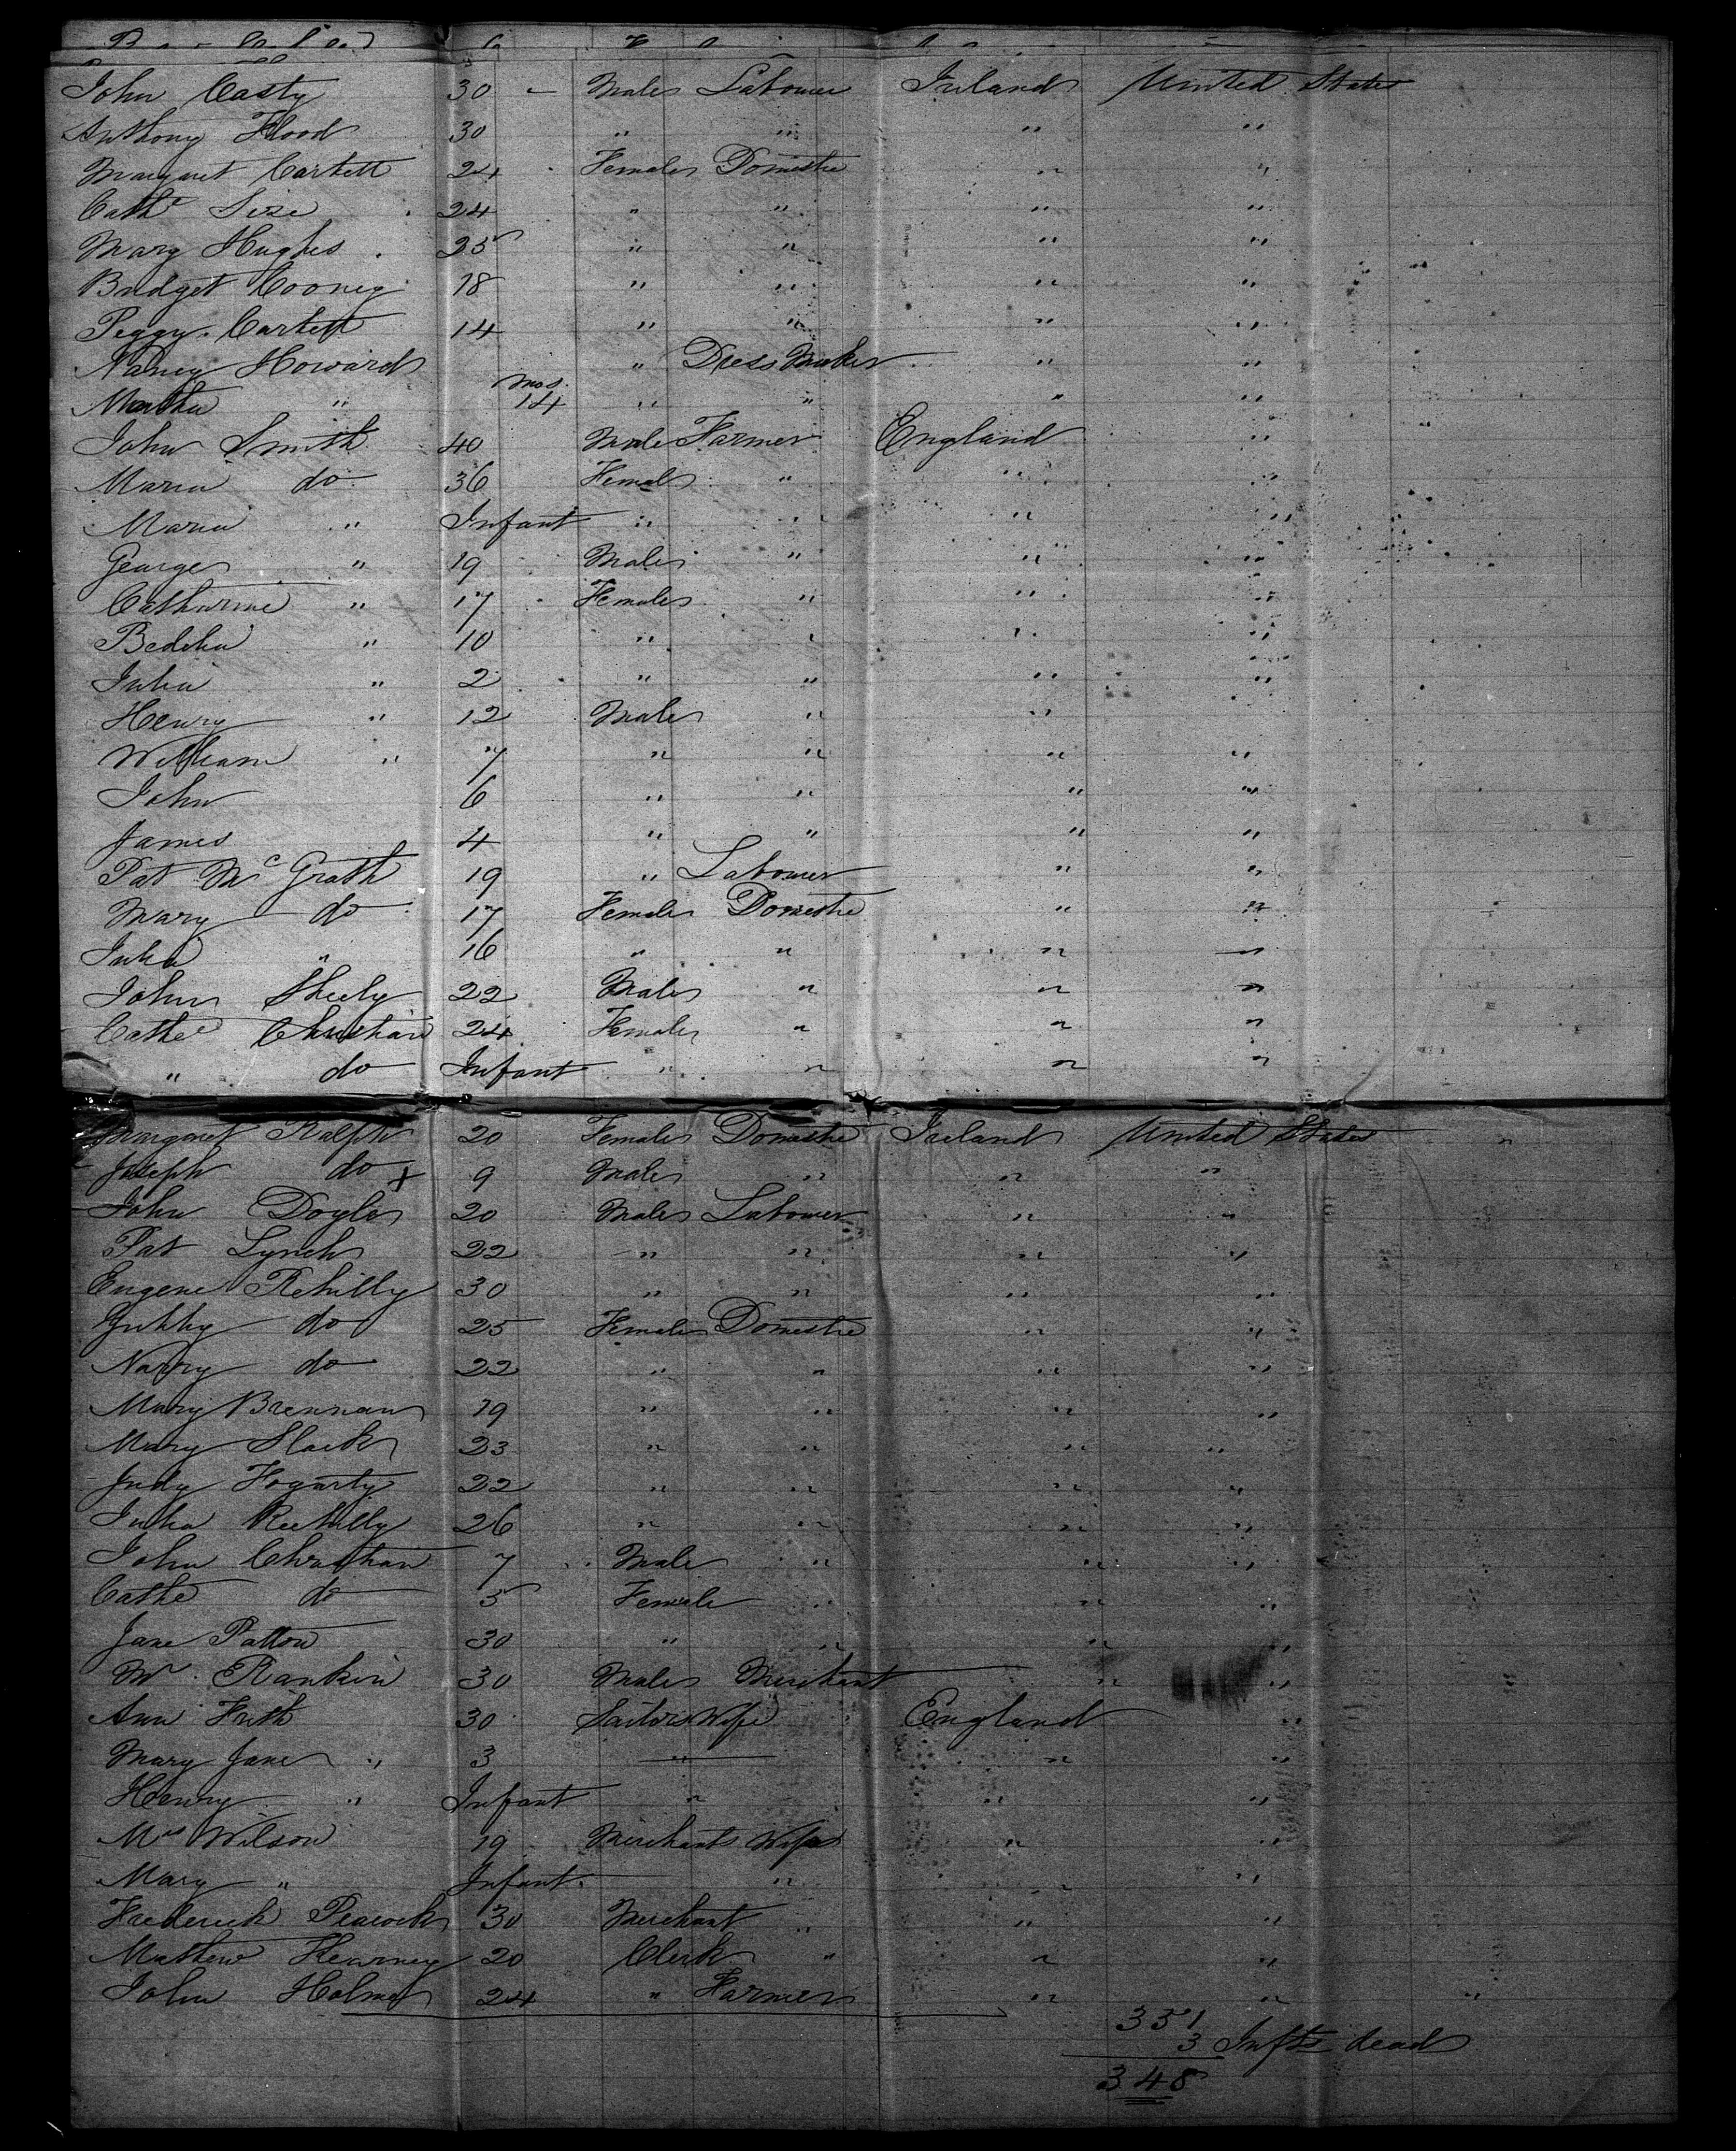 John Casty 30 – Male Labourer Ireland United States
Anthony Flood 30 " " " "
Margaret Carkett 24 Female Domestic " "
Cathe Size 24 " " " "
Mary Hughes 25 " " " "
Bridget Cooney 18 " " " "
Peggy Carkett 14 " " " "
Nancy Howard " Dress Maker " "
Martha " mos. 14 " " " "
John Smith 40 Male Farmer England "
Maria do 36 Female " " "
Maria " Infant " " " "
George " 19 Male " " "
Catharine " 17 Female " " "
" 10 " " " "
Julia " 2 " " " "
Henry " 12 Male " "
William " 7 " " " "
John 6 " " " "
James 4 " " " "
Pat Mc Grath 19 " Labourer " "
Mary do 17 Female Domestic " "
Julia " 16 " " " "
John Sheely 22 Male " " "
Cathe Christian 24 Female " " "
" do Infant " " " "
Margaret Ralph 20 Female Domestic Ireland United States "
Joseph do x 9 Male " " "
John Doyle 20 Male Labourer " "
Pat Lynch 22 " " " "
Eugene Rehilly 30 " " " "
do 25 Female Domestic " "
Nancy do 22 " " " "
Mary Brennan 19 " " " "
Mary Slack 23 " " " "
Judy Fogarty 22 " " " "
Julia Reehilly 26 " " " "
John Christian 7 Male " " "
Cathe do 5 Female " " "
Jane Patton 30 " " " "
Mr Rankin 30 Male Merchant " "
Ann Frith 30 Sailors Wife England "
Mary Jane " 3 " " "
Henry " Infant " " "
Mrs Wilson 19 Merchants Wife " "
Mary " Infant " " "
Frederick Peacock 30 Merchant " " "
Mathew Kearney 20 Clerk " " "
John Holmes 24 " Farmer " " "
351
3 Infts dead
348